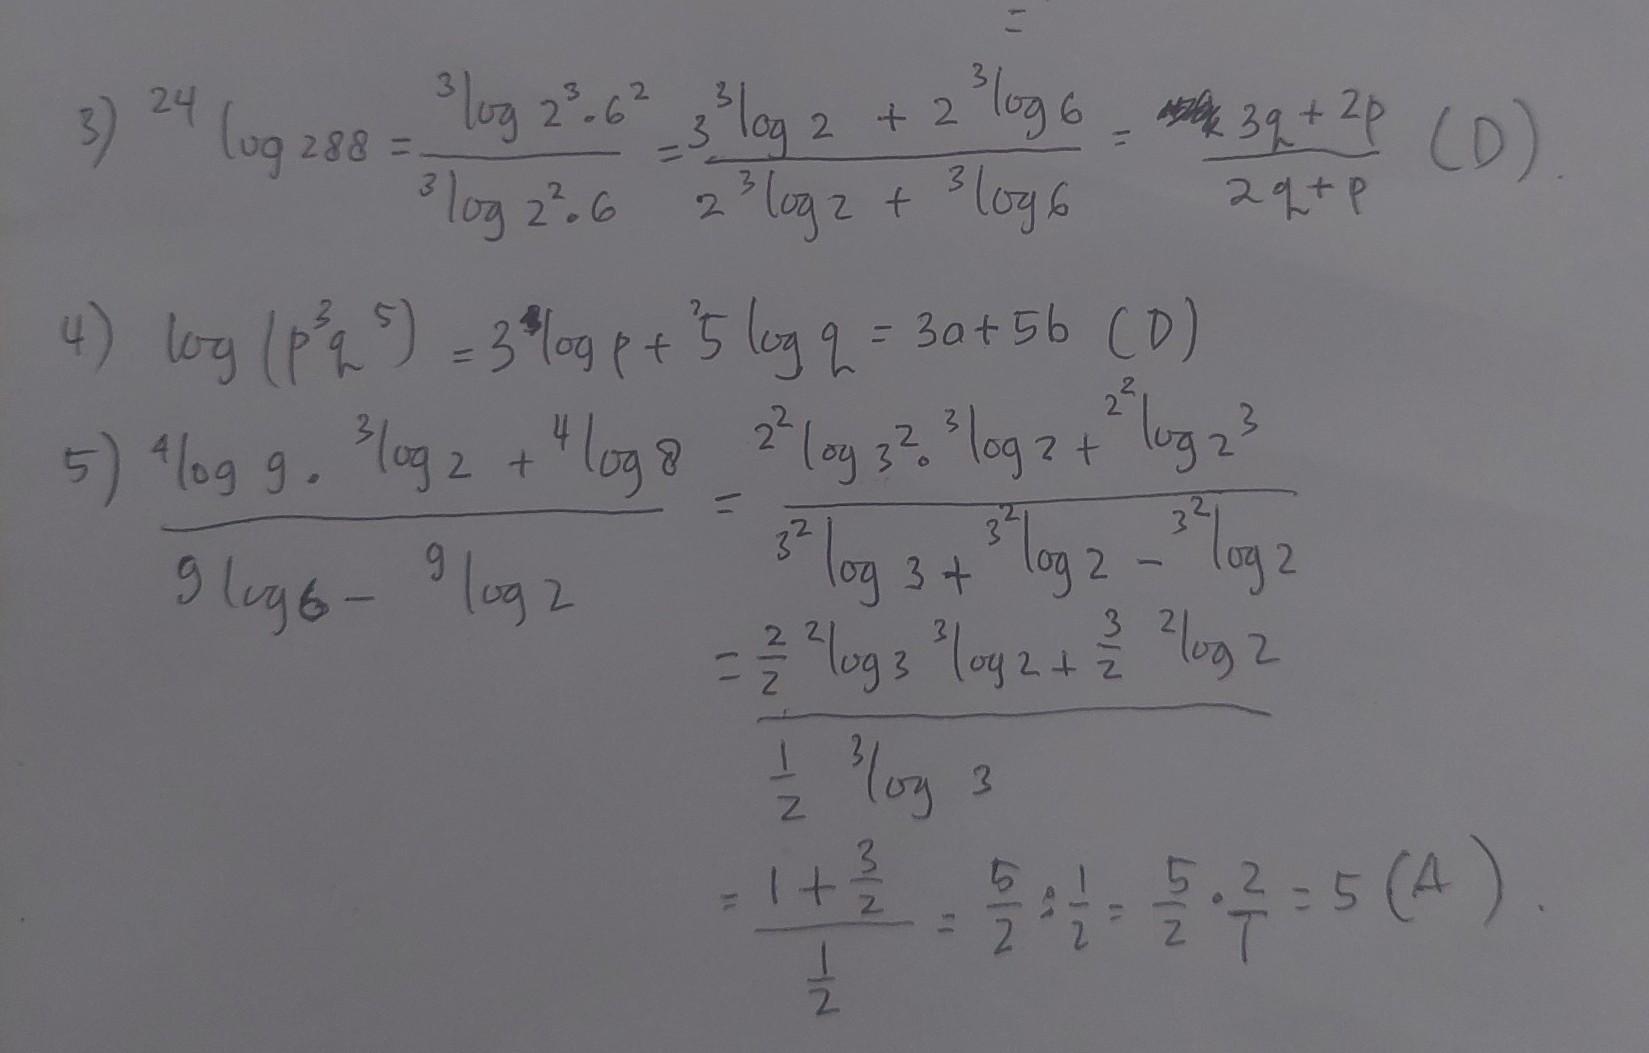 =
3) ²⁴log 288 = ³log 2³.6² / ³log 2².6 = 3 ³log 2 + 2 ³log 6 / 2 ³log 2 + ³log 6 = 3q + 2p / 2q + p (D).
4) log (p³q⁵) = 3 log p + 5 log q = 3a + 5b (D)
5) ⁴log 9 . ³log 2 + ⁴log 8 / ⁹log 6 - ⁹log 2 = 2²log 3² . ³log 2 + 2²log 2³ / 3²log 3 + 3²log 2 - 3²log 2
= 2/2 ²log 3 ³log 2 + 3/2 ²log 2 / 1/2 ³log 3
= 1 + 3/2 / 1/2 = 5/2 : 1/2 = 5/2 . 2/1 = 5 (A).